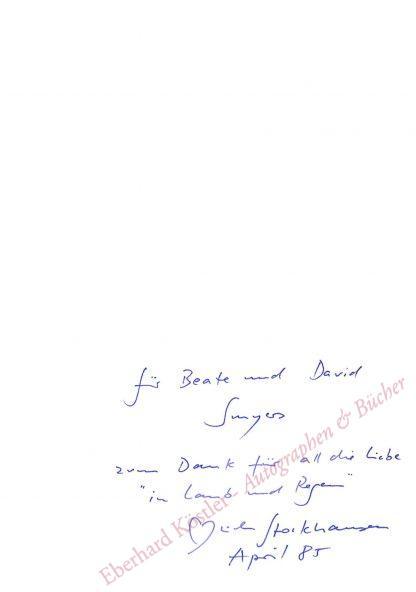 für Beate und David
Smyers
zum Dank für all die Liebe
"in Lamb und Regen"
Stockhausen
April 85
Eberhard Köstler - Autographen & Bücher